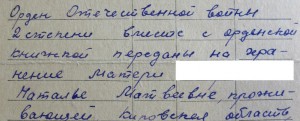 Орден Отечественной войны
2 степени вместе с орденской
книжкой переданы на хра-
нение матери
Наталье Матвеевне, прожи-
вающей Кировская область,